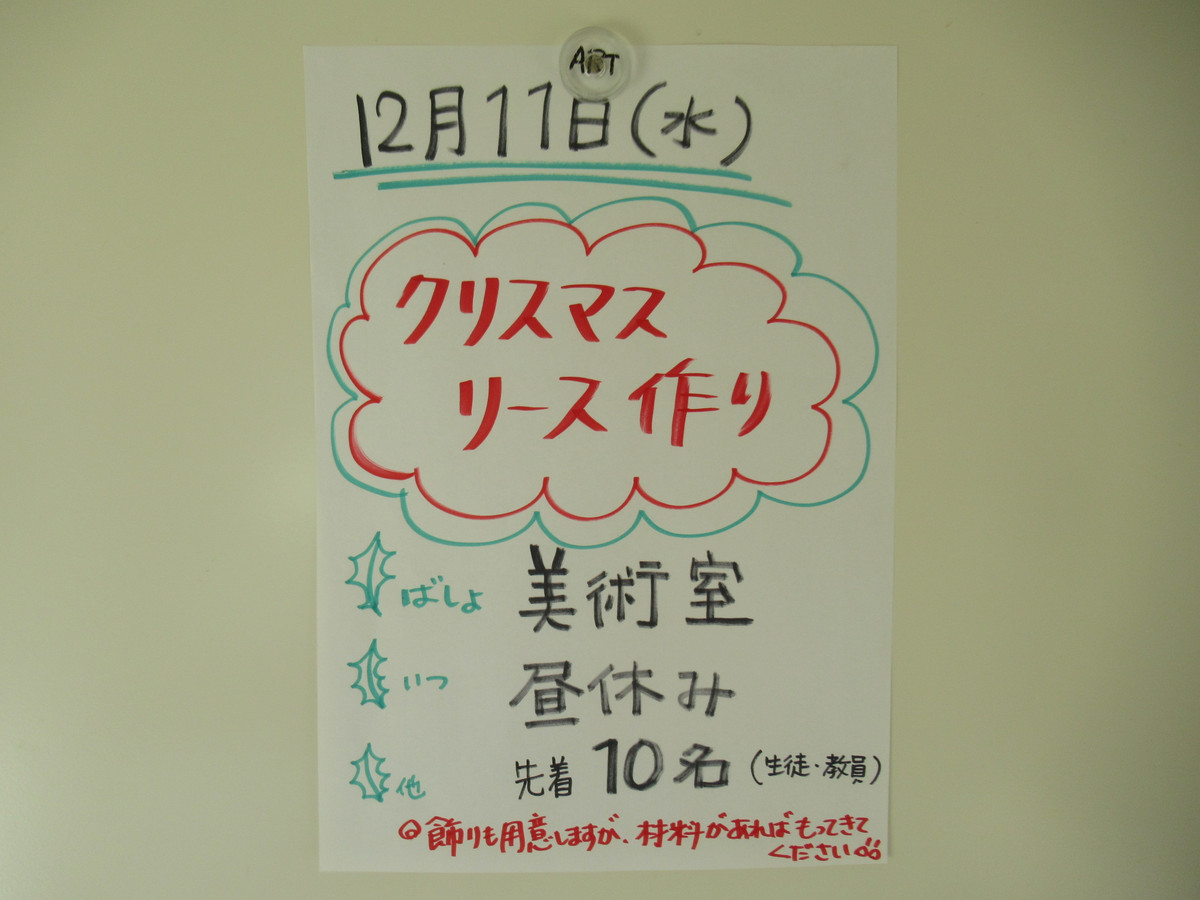 ART
12月11日(水)
クリスマス
リース作り
ばしょ 美術室
いつ 昼休み
他 先着10名(生徒・教員)
◎飾りも用意しますが、材料があればもってきて
ください